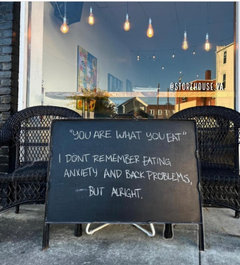 @STOREHOUSE.VA
"YOU ARE WHAT YOU EAT"
I DON'T REMEMBER EATING
ANXIETY AND BACK PROBLEMS,
BUT ALRIGHT.